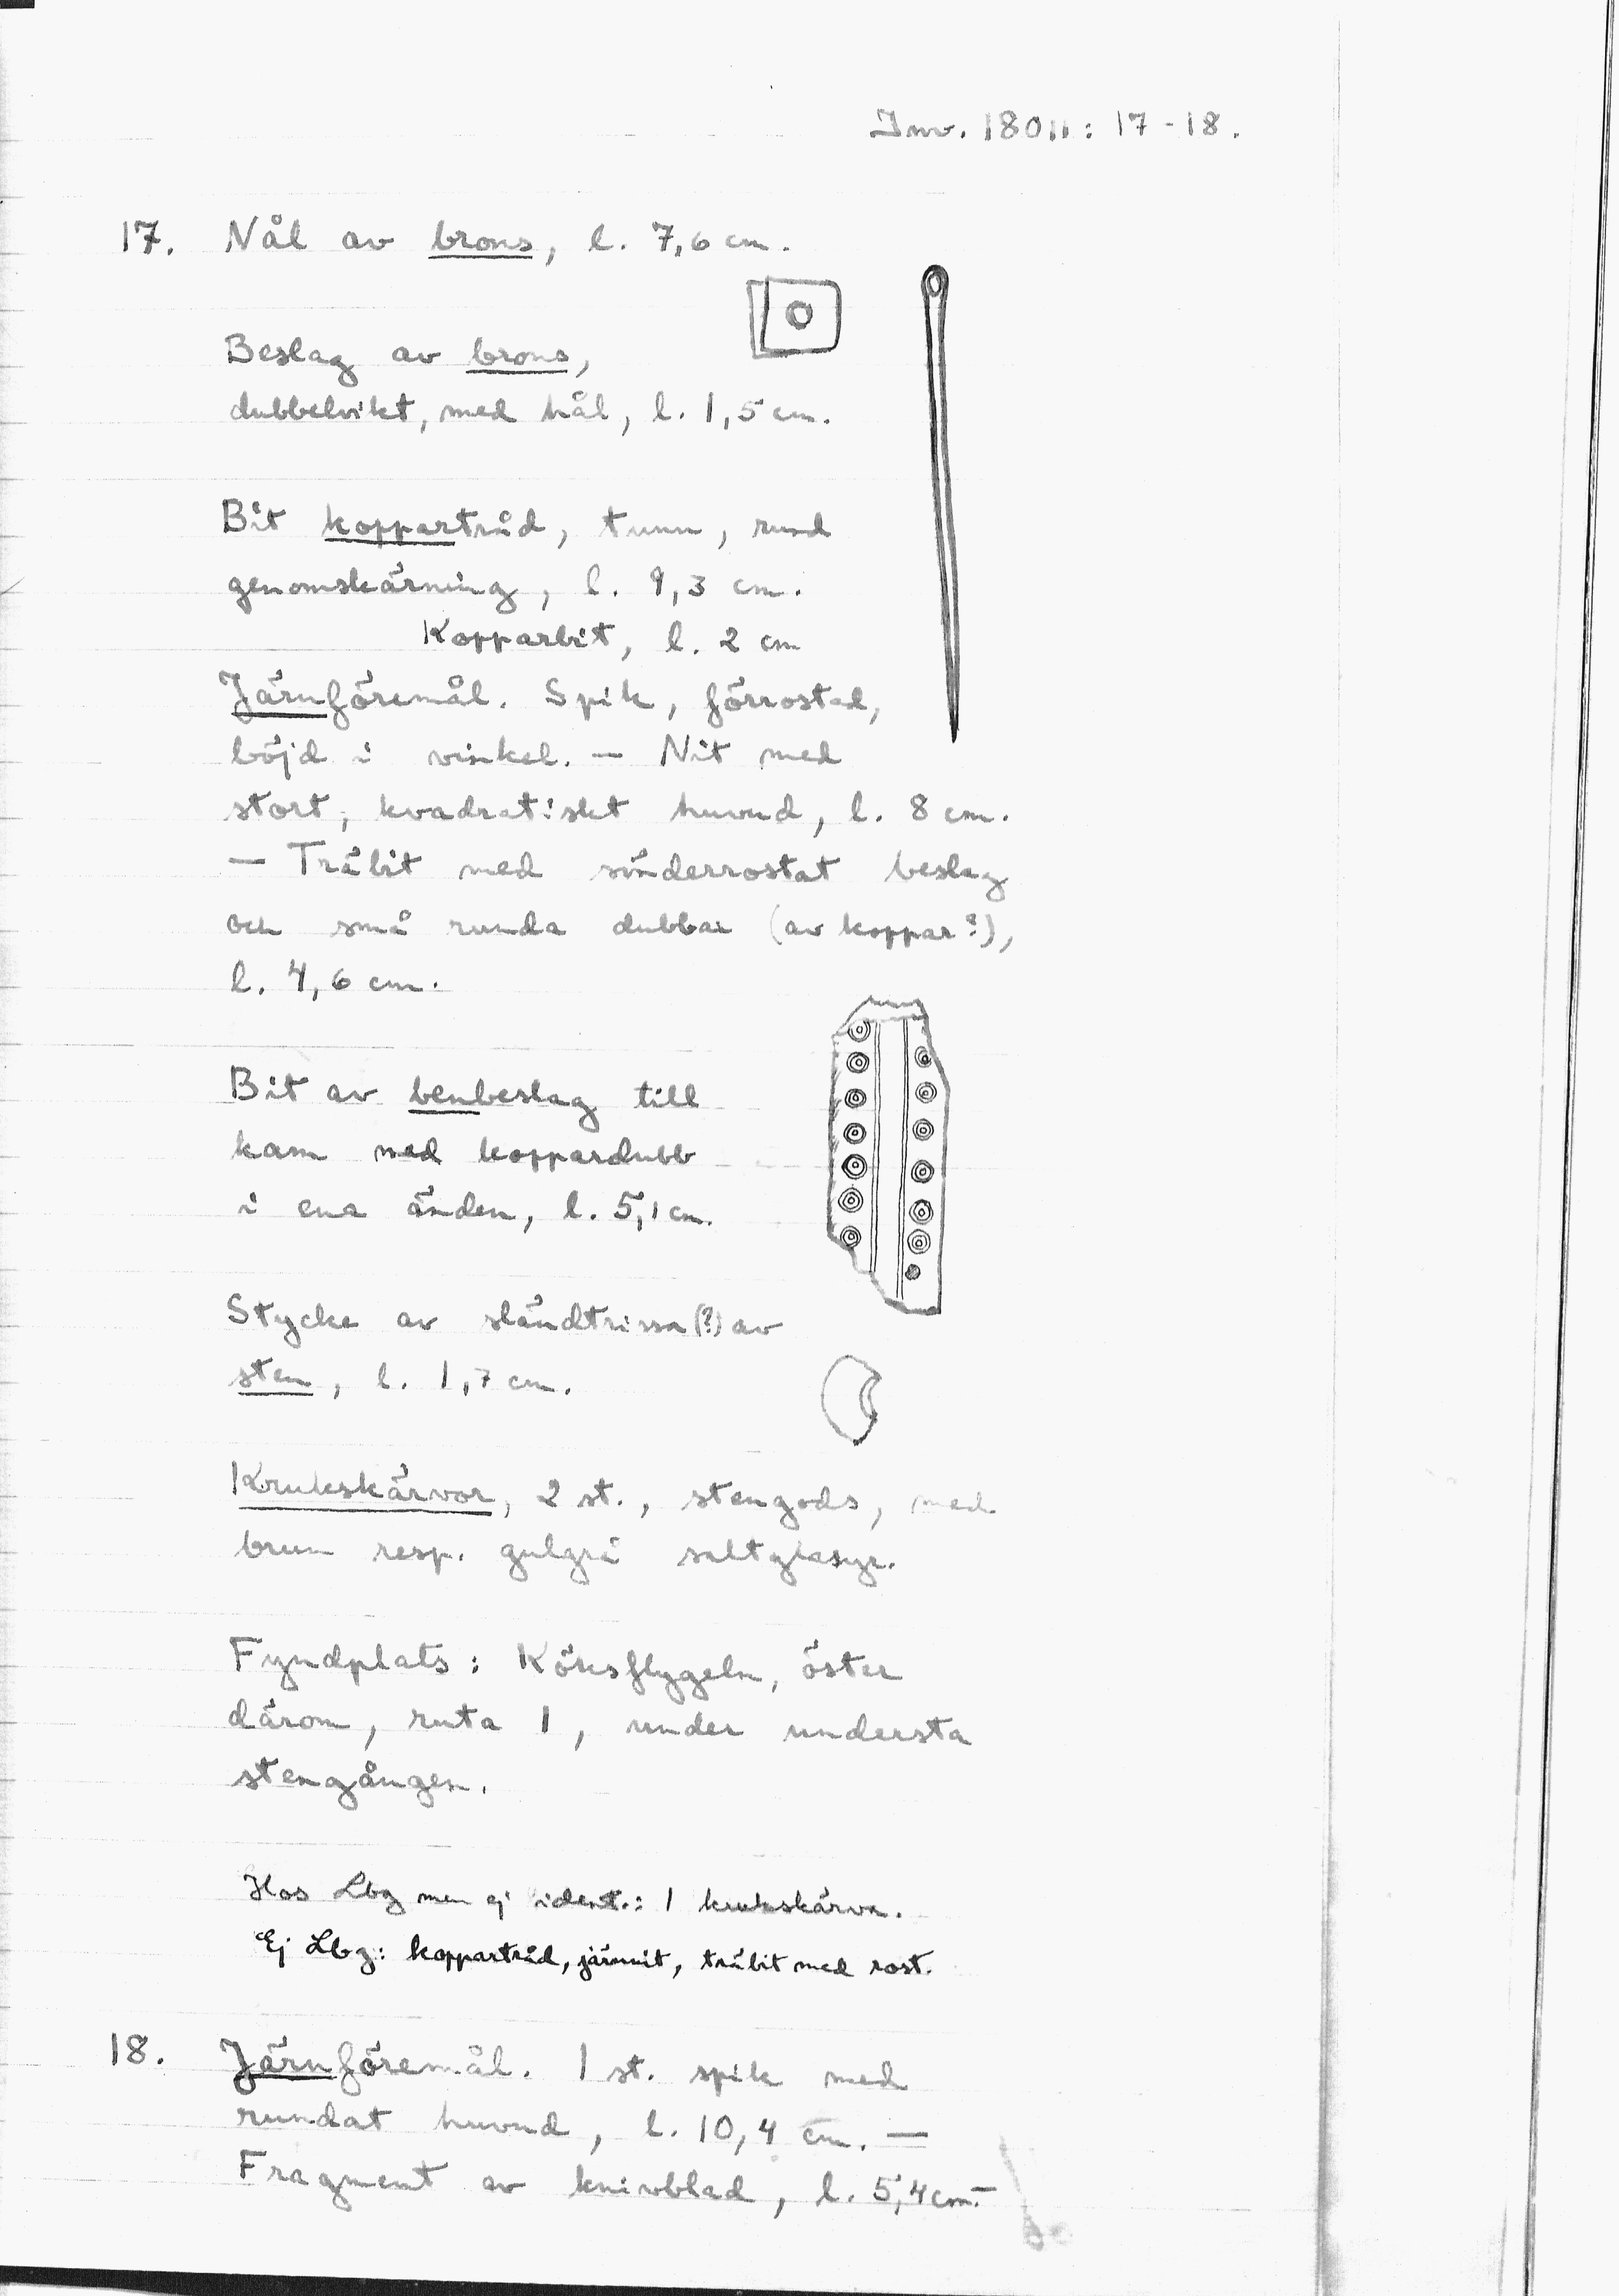 Inv. 18011: 17-18.
17. Nål av brons, l. 7,6 cm.
Beslag av brons,
dubbelvikt, med hål, l. 1,5 cm.
Bit koppartråd, tunn, rund
genomskärning, l. 9,3 cm.
Kopparbit, l. 2 cm
Järnföremål. Spik, förrostad,
böjd i vinkel. — Nit med
stort, kvadratiskt huvud, l. 8 cm.
— Träbit med sönderrostat beslag
och små runda dubbar (av koppar?),
l. 4,6 cm.
Bit av benbeslag till
kam med koppardubb
i ena änden, l. 5,1 cm.
Stycke av sländtrissa (?) av
sten, l. 1,7 cm.
Krukskärvor, 2 st., stengods, med
brun resp. gulgrå saltglasyr.
Fyndplats: Köksflygeln, öster
därom, ruta 1, under understa
stengången.
Hos Lbg men ej ident.: 1 krukskärva.
Ej Lbg: koppartråd, järnnit, träbit med rost.
18. Järnföremål. 1 st. spik med
rundat huvud, l. 10,4 cm. —
Fragment av knivblad, l. 5,4 cm. —